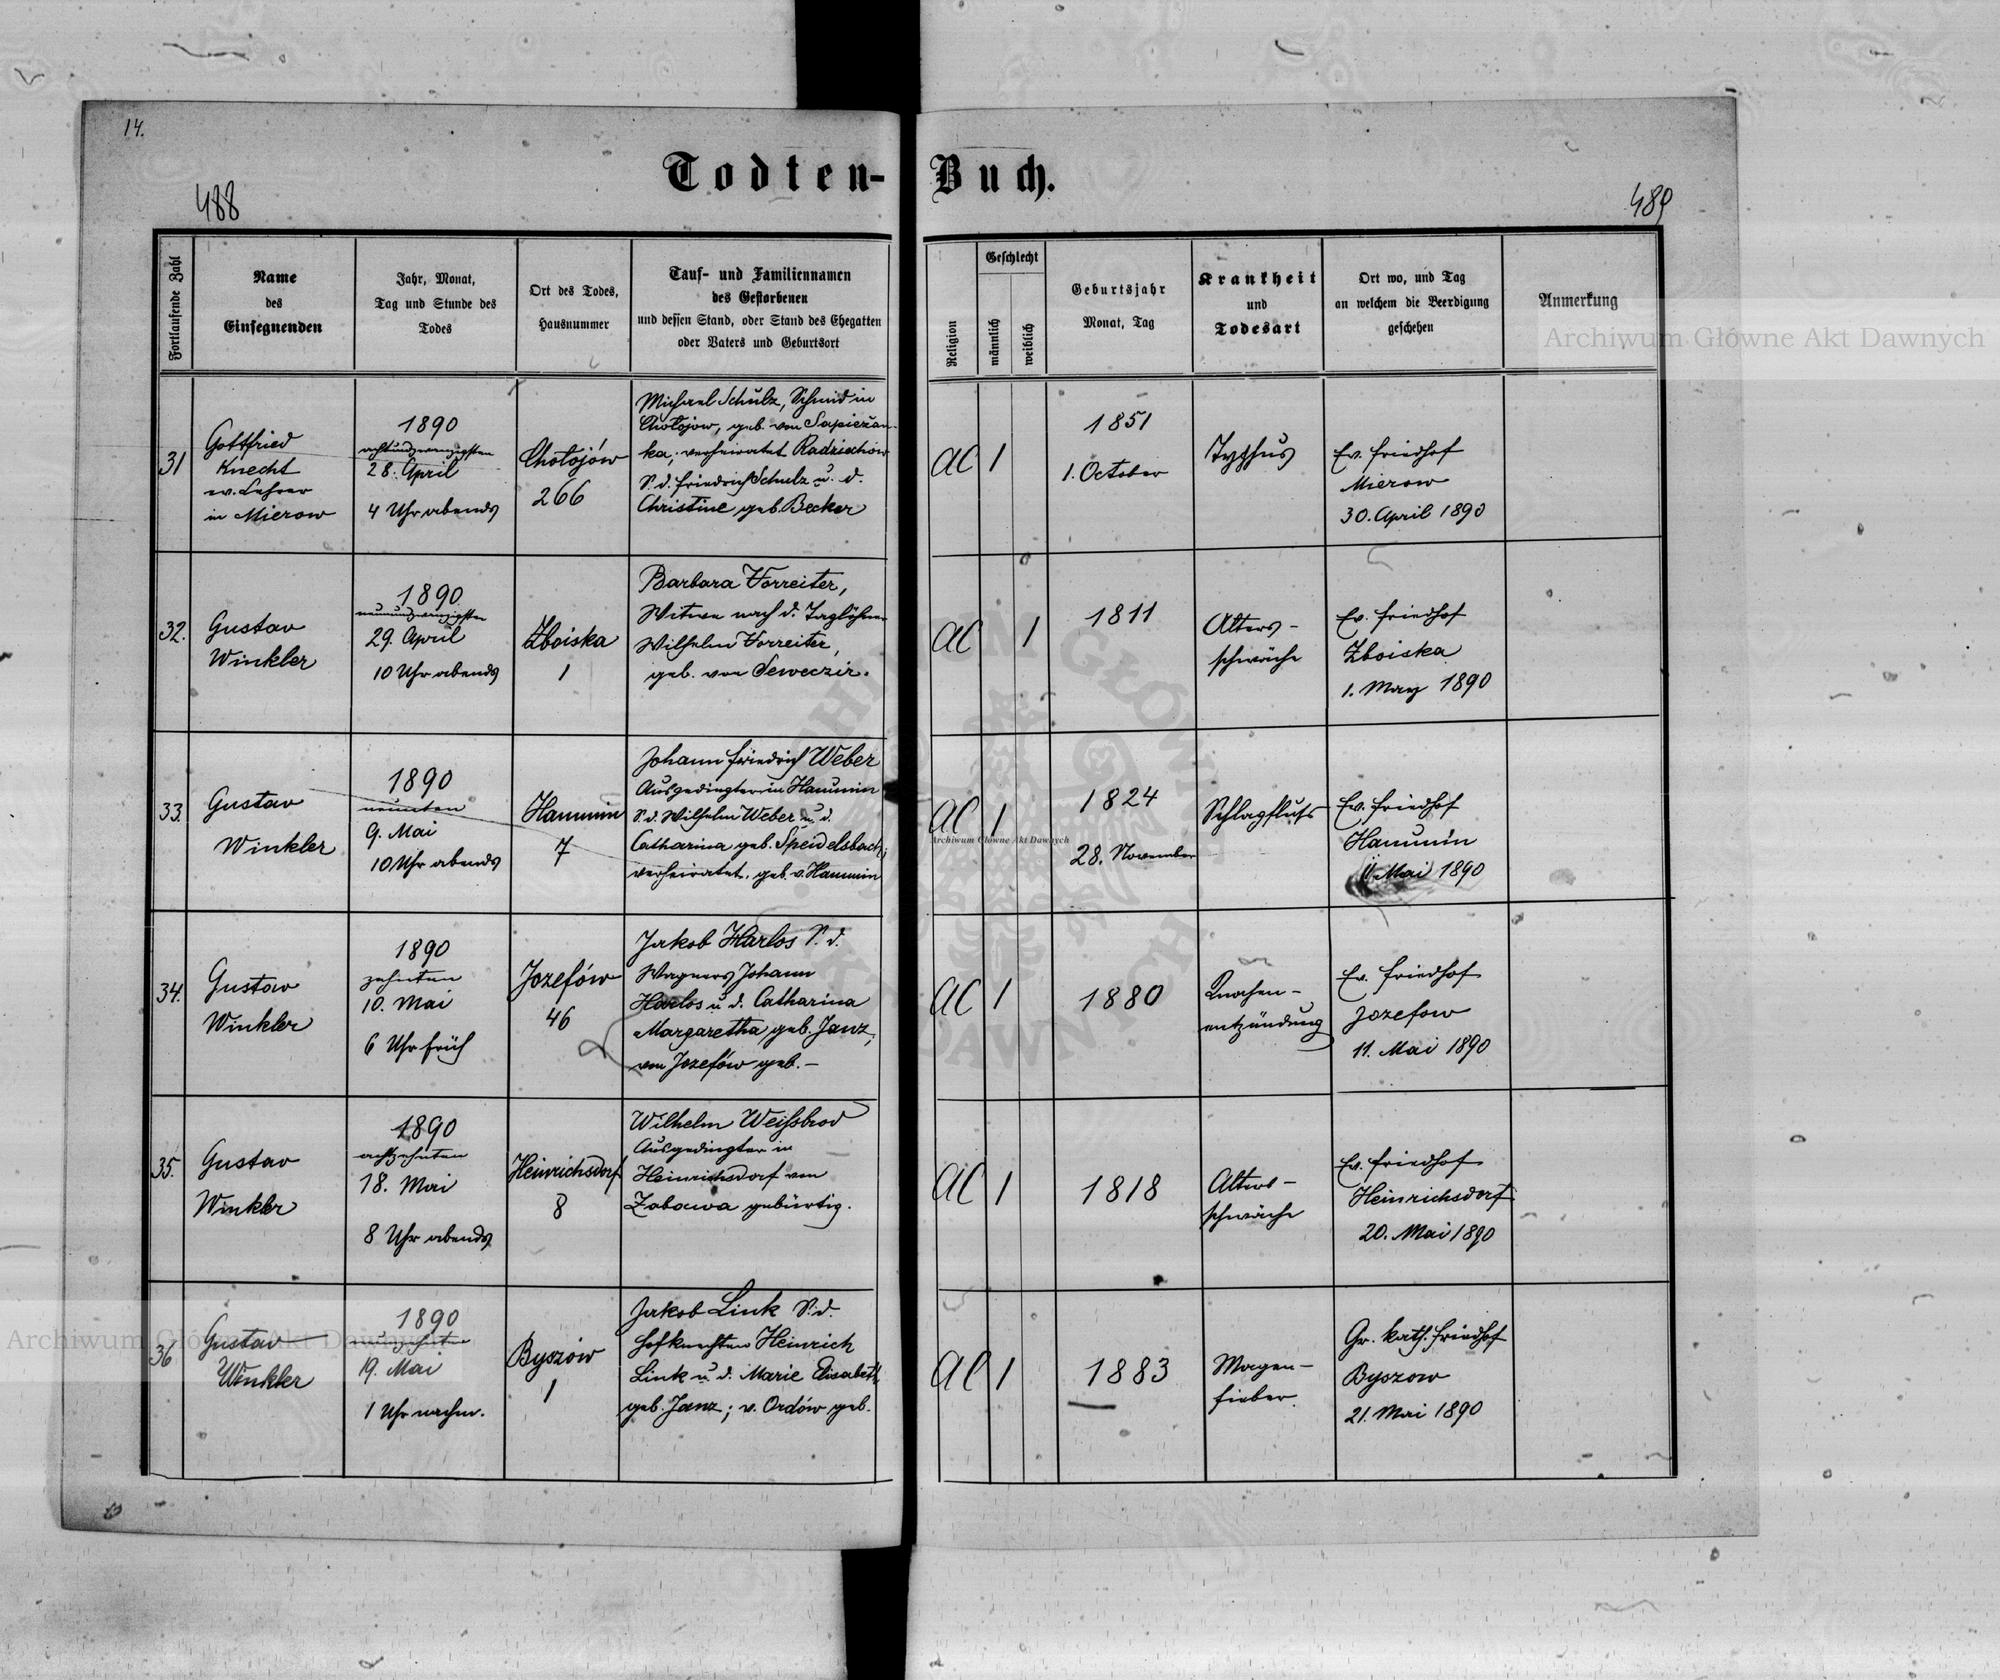 14.
488
Todten-Buch.
489
Fortlaufende Zahl
Name
des
Einsegnenden
Jahr, Monat,
Tag und Stunde des
Todes
Ort des Todes,
Hausnummer
Tauf- und Familiennamen
des Gestorbenen
und dessen Stand, oder Stand des Ehegatten
oder Vaters und Geburtsort
Religion
Geschlecht
männlich
weiblich
Geburtsjahr
Monat, Tag
Krankheit
und
Todesart
Ort wo, und Tag
an welchem die Beerdigung
geschehen
Anmerkung
Archiwum Główne Akt Dawnych
31
Gottfried
Knecht
ev. Lehrer
in Mierow
1890
achtundzwanzigsten
28. April
4 Uhr abends
Chołojów
266
Michael Schulz, Schmid in
Chołojow, geb. von Sapieżan-
ka, verheiratet Radziechow
S. d. Friedrich Schulz u. d.
Christine geb. Becker
AC
1
1851
1. October
Typhus
Ev. Friedhof
Mierow
30. April 1890
32.
Gustav
Winkler
1890
neunundzwanzigsten
29. April
10 Uhr abends
Zboiska
1
Barbara Vorreiter,
Witwe nach d. Taglöhner
Wilhelm Vorreiter,
geb. von Seweczir.
AC
1
1811
Alters-
schwäche
Ev. Friedhof
Zboiska
1. May 1890
33.
Gustav
Winkler
1890
neunten
9. Mai
10 Uhr abends
Hanunin
7
Johann Friedrich Weber
Ausgedingter in Hanunin
S. d. Wilhelm Weber u. d.
Catharina geb. Speidelsbach;
verheiratet. geb. v. Hanunin
AC
1
1824
28. November
Schlagfluss
Ev. Friedhof
Hanunin
11. Mai 1890
Archiwum Główne Akt Dawnych
34.
Gustav
Winkler
1890
zehnten
10. Mai
6 Uhr früh
Jozefów
46
Jakob Harlos S. d.
Wagners Johann
Harlos u. d. Catharina
Margaretha geb. Janz,
von Jozefów geb. –
AC
1
1880
Knochen-
entzündung
Ev. Friedhof
Jozefow
11. Mai 1890
35.
Gustav
Winkler
1890
achtzehnten
18. Mai
8 Uhr abends
Heinrichsdorf
8
Wilhelm Weißbrod
Ausgedingter in
Heinrichsdorf von
Zabawa gebürtig.
AC
1
1818
Alters-
schwäche
Ev. Friedhof
Heinrichsdorf
20. Mai 1890
36
Gustav
Winkler
1890
neunzehnten
19. Mai
1 Uhr nachm.
Byszów
1
Jakob Link S. d.
Hofknechten Heinrich
Link u. d. Marie Elisabeth
geb. Janz; v. Ordów geb.
AC
1
1883
Magen-
fieber.
Gr. kath. Friedhof
Byszow
21. Mai 1890
Archiwum Główne Akt Dawnych